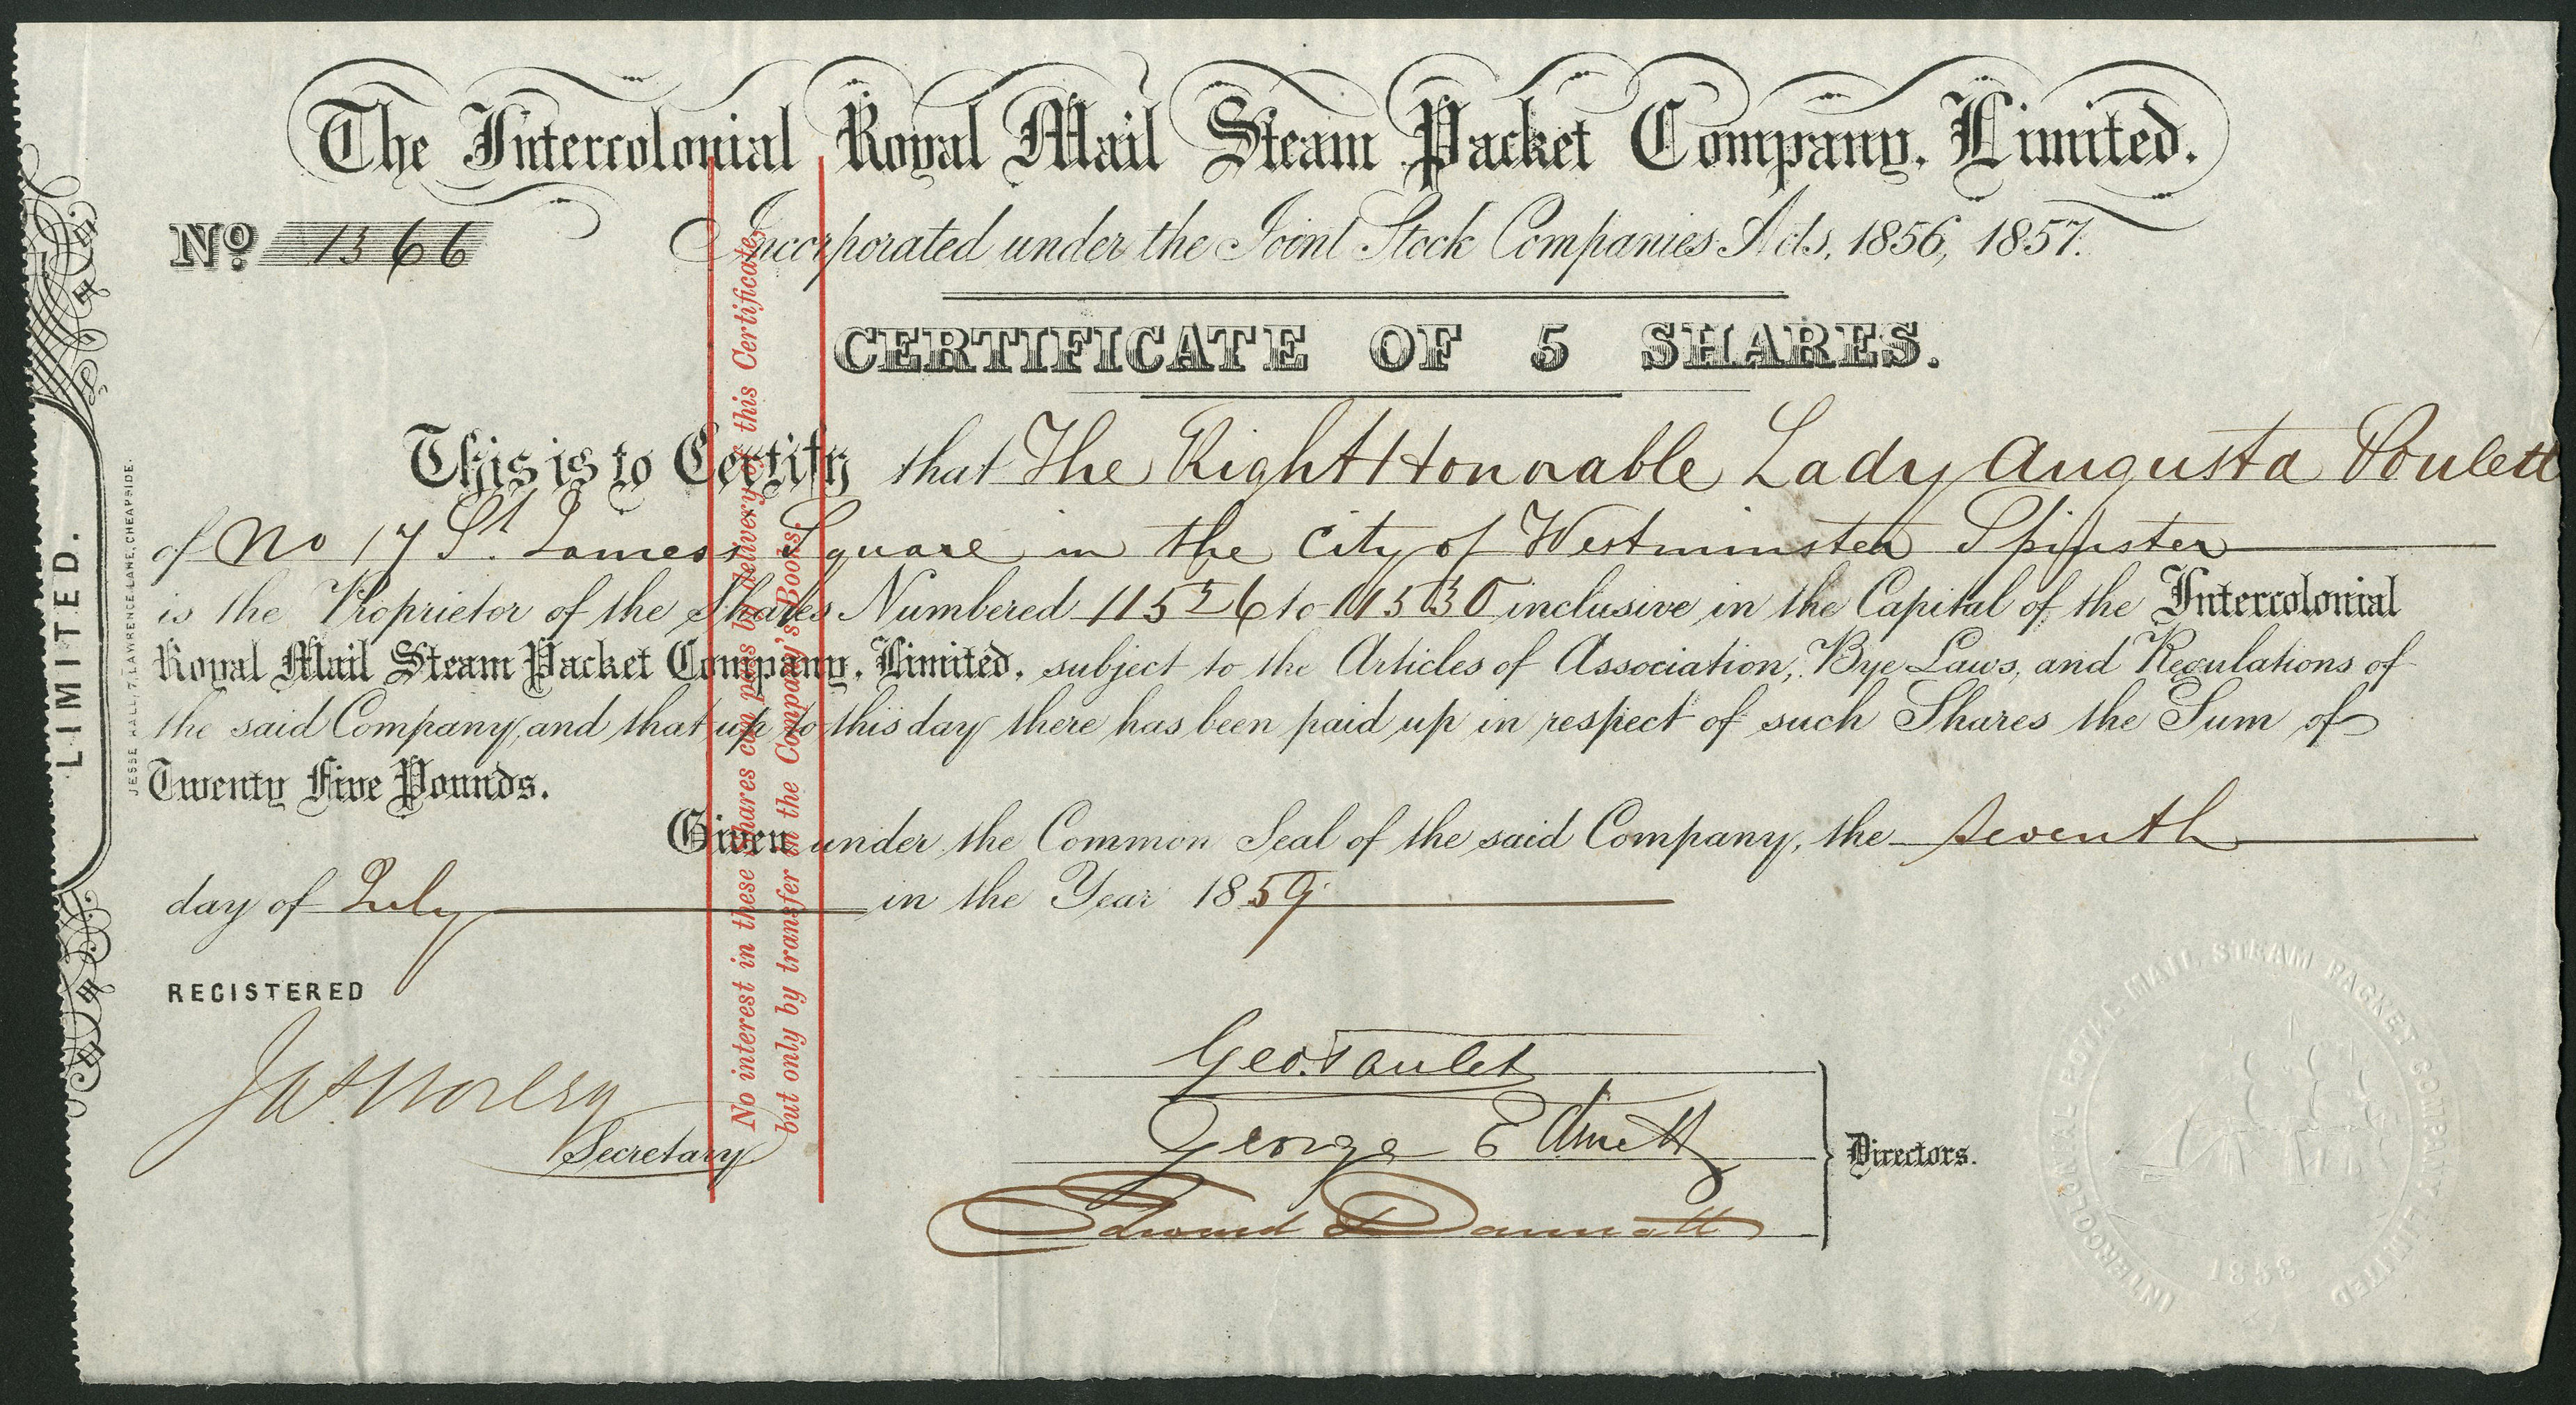 The Intercolonial Royal Mail Steam Packet Company, Limited.
No. 1366
Incorporated under the Joint Stock Companies Acts, 1856, 1857.
CERTIFICATE OF 5 SHARES.
This is to Certify that The Right Honorable Lady Augusta Poulett
of No 17 St. James's Square in the City of Westminster Spinster
is the Proprietor of the Shares Numbered 11526 to 11530 inclusive in the Capital of the Intercolonial
Royal Mail Steam Packet Company, Limited, subject to the Articles of Association, Bye Laws, and Regulations of
the said Company, and that up to this day there has been paid up in respect of such Shares the Sum of
Twenty Five Pounds.
Given under the Common Seal of the said Company, the seventh
day of July in the Year 1859
REGISTERED
Secretary
Geo. Paulet
George E
Edward Dannatt
Directors.
No interest in these Shares can pass by delivery of this Certificate,
but only by transfer in the Company's Books.
LIMITED.
JESSE HALL, 7, LAWRENCE LANE, CHEAPSIDE.
INTERCOLONIAL ROYAL MAIL STEAM PACKET COMPANY LIMITED
1858